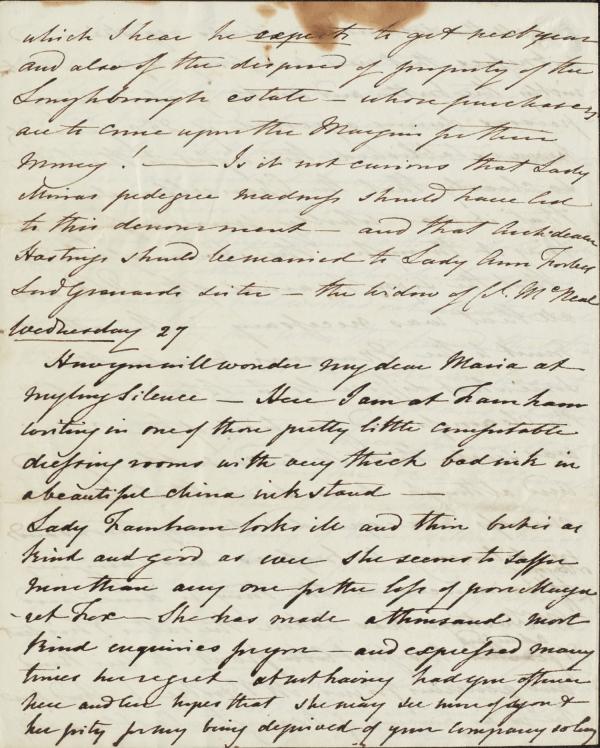 which I hear he expects to get next year
and also of the disposal of property of the
Loughborough estate – whose purchasers
are to come upon the Marquis for their
money! —— Is it not curious that Lady
Moiras pedegree madness should have led
to this denouement – and that Archdeacon
Hastings should be married to Lady Ann Forbes
Lord Granards sister – the widow of Cl. McNeal
Wednesday 27
How you will wonder my dear Maria at
my long silence – Here I am at Farnham
writing in one of those pretty little comfortable
dressing rooms with very thick bad ink in
a beautiful china inkstand —
Lady Farnham looks ill and thin but is as
kind and good as ever she seems to suffer
more than any one for the loss of poor Marga
-ret Fox – She has made a thousand most
kind enquiries for you – and expressed many
times her regret at not having had you oftener
here and her hopes that she may see more of you &
her pity for my being deprived of your company so long